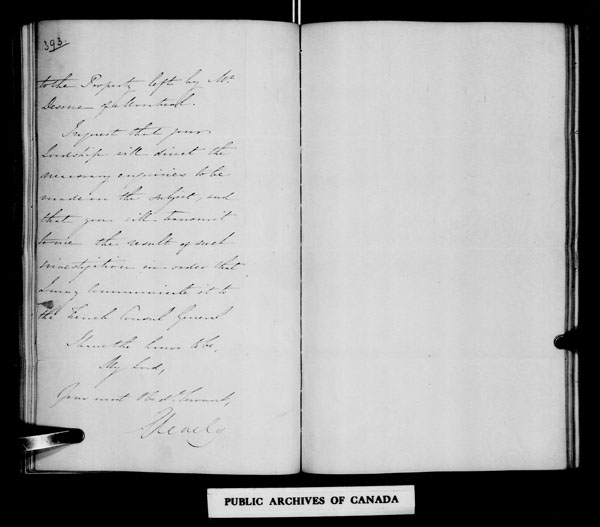 393.
to the Property left by Mr
of Montreal.
I request that your
Lordship will direct the
necessary enquiries to be
made on the subject, and
that you will transmit
to me the result of such
investigation in order that
I may communicate it to
the French Consul General
I have the honor to be,
My Lord,
Your most Obedt. Servant,
PUBLIC ARCHIVES OF CANADA